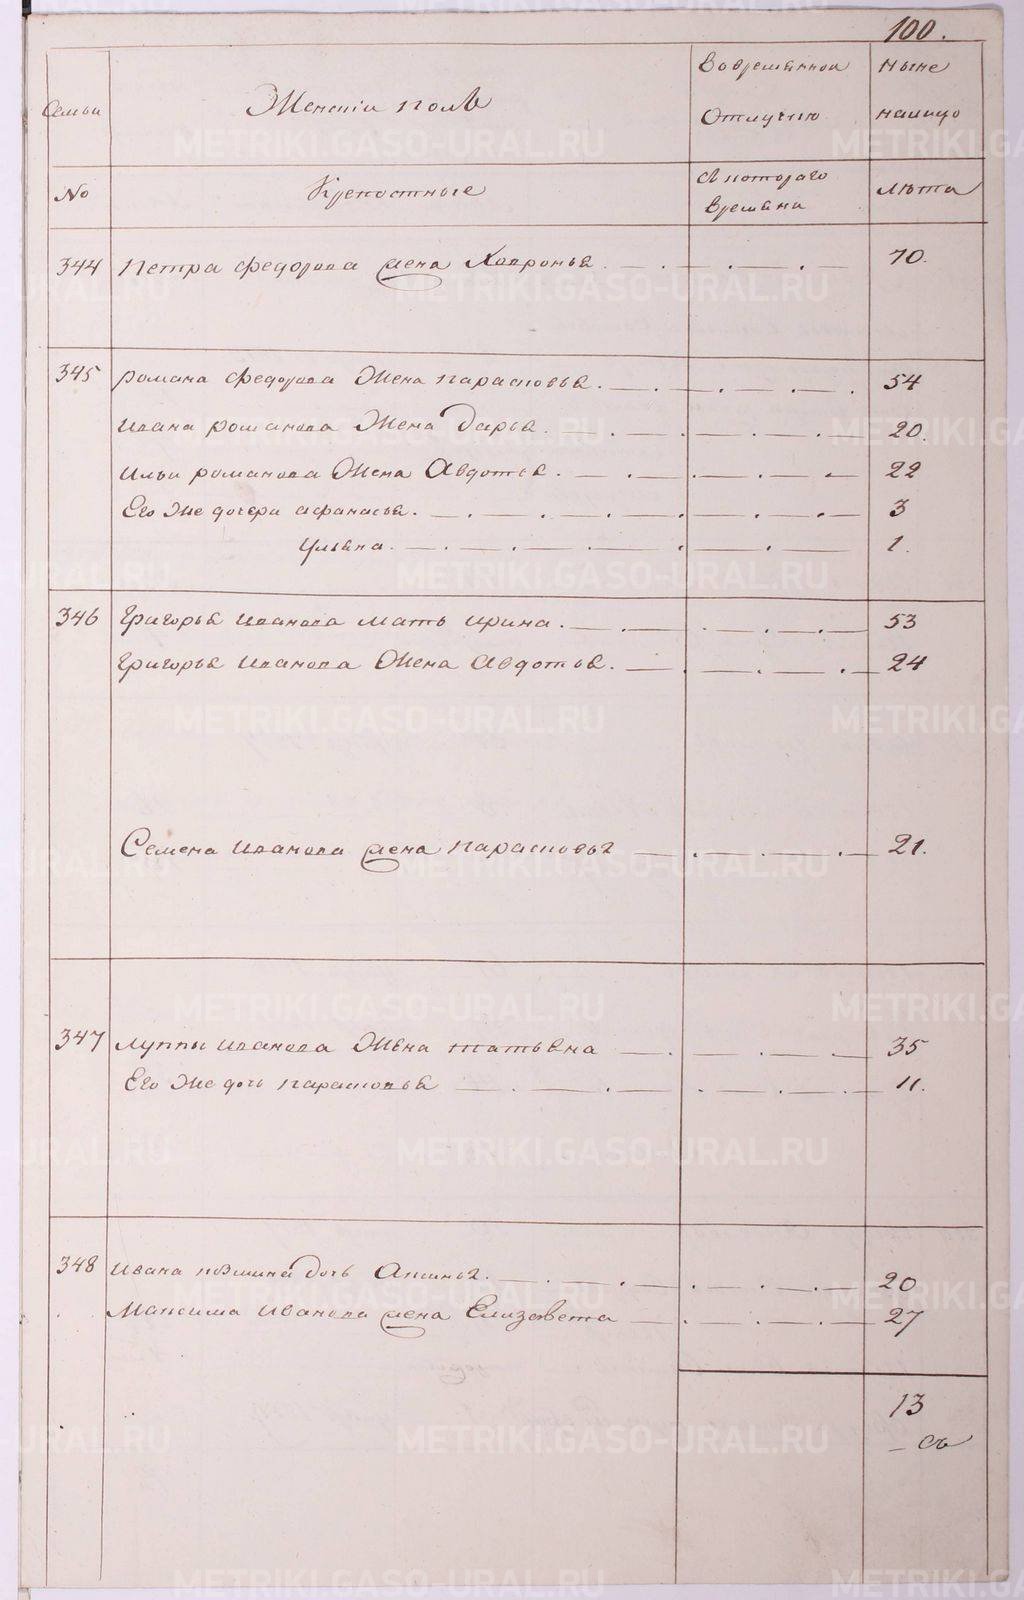 100.
Семьи Женскiй полъ Вовременной Отлучкѣ Ныне налицо
No Крепостные Съ котораго времѣни Лѣта
344 Петра Федорова жена Хавронья 70.
345 Романа Федорова Жена Парасковья 54
Ивана Романова Жена Дарья 20.
Ильи Романова Жена Авдотья 22
Его Же дочери Афанасья 3
Ульяна 1.
346 Григорья Иванова Мать Ирина 53
Григорья Иванова Жена Авдотья 24
Семена Иванова жена Парасковья 21.
347 Луппы Иванова Жѣна Татьяна 35
Его Же дочь Парасковья 11.
348 Ивана дочь Аксинья 20
Максима Иванова жена Елизавета 27
13
METRIKI.GASO-URAL.RU